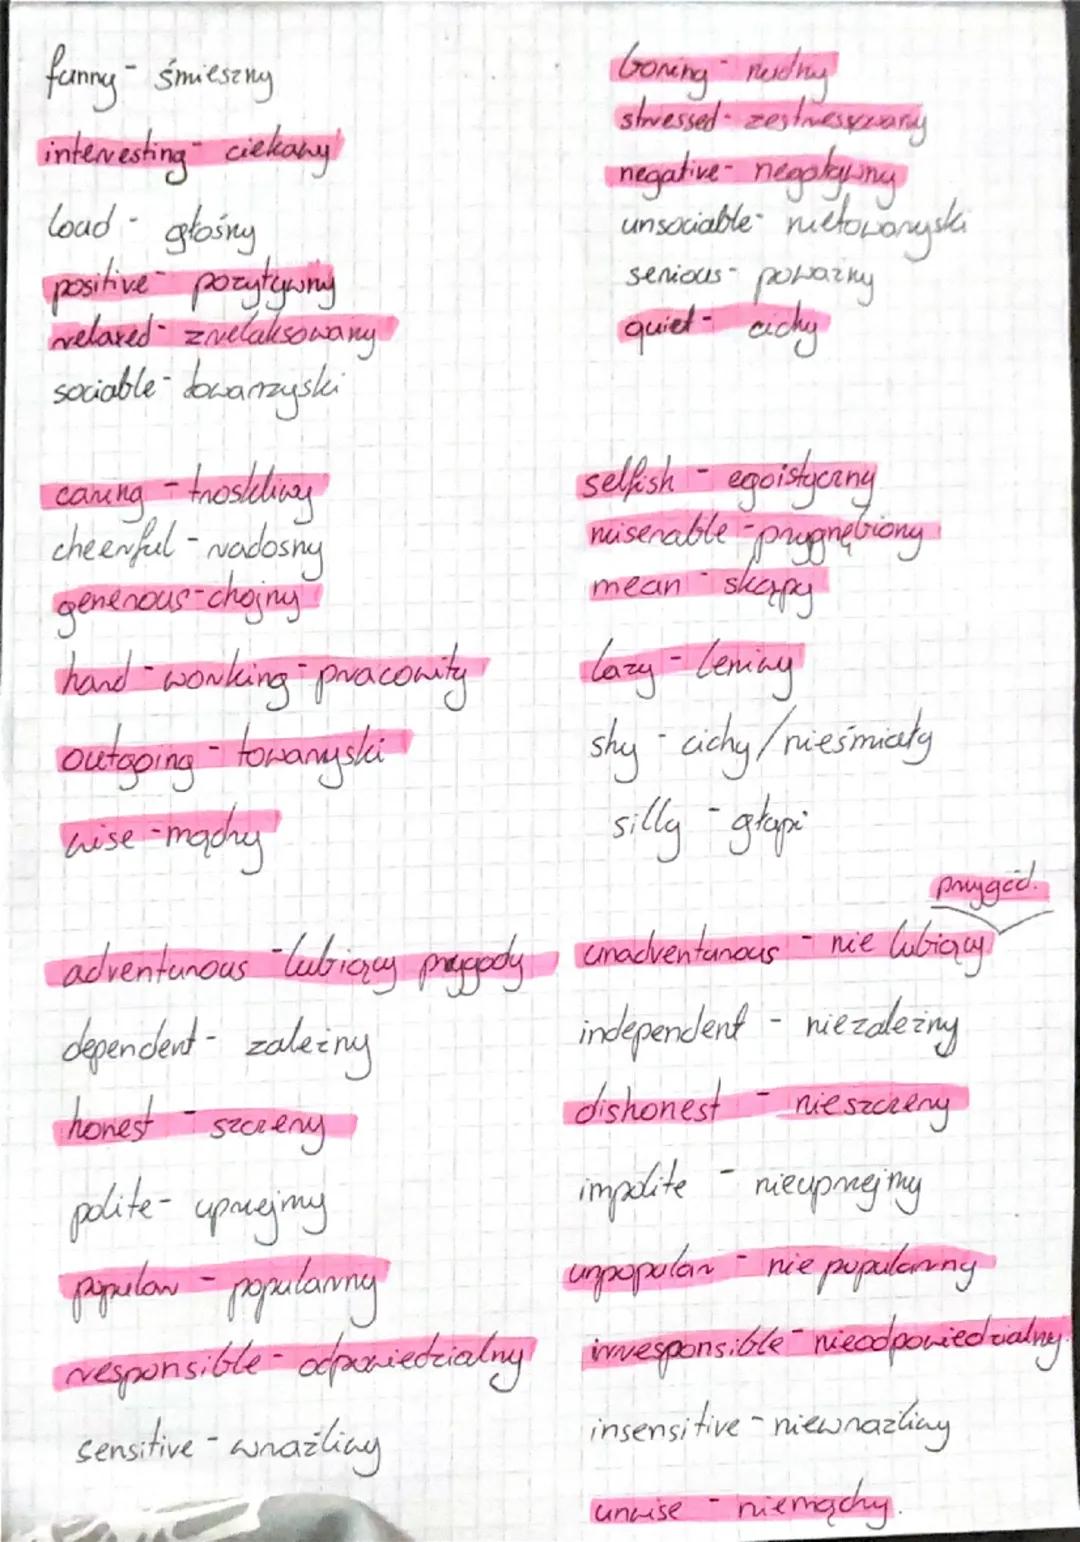 funny - śmieszny
interesting - ciekawy
loud - głośny
positive - pozytywny
relaxed - zrelaksowany
sociable - towarzyski
boring - nudny
stressed - zestresowany
negative - negatywny
unsociable - nietowarzyski
serious - poważny
quiet - cichy
caring - troskliwy
cheerful - radosny
generous - chojny
hard-working - pracowity
outgoing - towarzyski
wise - mądry
selfish - egoistyczny
miserable - przygnębiony
mean - skąpy
lazy - leniwy
shy - cichy/nieśmiały
silly - głupi
adventurous - lubiący przygody
dependent - zależny
honest - szczery
polite - uprzejmy
popular - popularny
responsible - odpowiedzialny
sensitive - wrażliwy
przygód.
unadventurous - nie lubiący
independent - niezależny
dishonest - nieszczery
impolite - nieuprzejmy
unpopular - nie popularny
irresponsible - nieodpowiedzialny.
insensitive - niewrażliwy
unwise - niemądry.